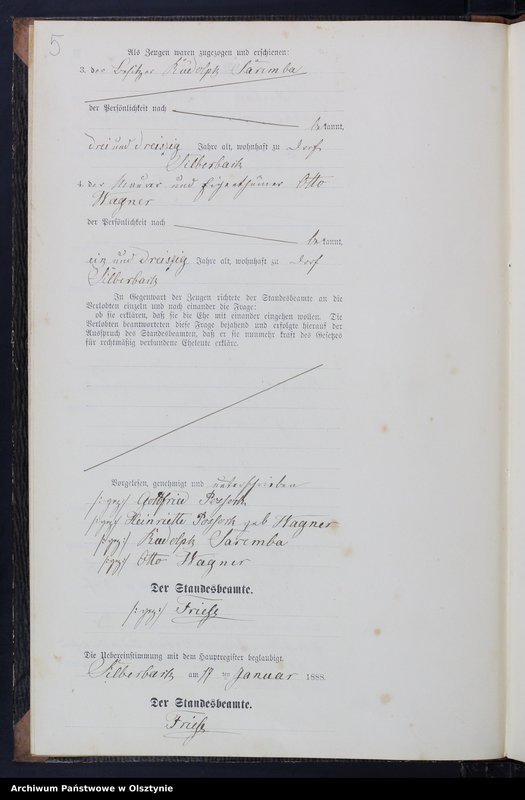 5
Als Zeugen waren zugezogen und erschienen:
3. der Besitzer Rudolph Saremba
der Persönlichkeit nach
bekannt,
drei und dreissig Jahre alt, wohnhaft zu Dorf
Silberbach
4. der Maurer und Eigenthümer Otto
Wagner
der Persönlichkeit nach
bekannt,
ein und dreissig Jahre alt, wohnhaft zu Dorf
Silberbach
In Gegenwart der Zeugen richtete der Standesbeamte an die
Verlobten einzeln und nach einander die Frage:
ob sie erklären, daß sie die Ehe mit einander eingehen wollen. Die
Verlobten beantworteten diese Frage bejahend und erfolgte hierauf der
Ausspruch des Standesbeamten, daß er sie nunmehr kraft des Gesetzes
für rechtmäßig verbundene Eheleute erkläre.
Vorgelesen, genehmigt und unterschrieben
/: gez :/ Gottfried
/: gez :/ Heinriette geb Wagner
/: gez :/ Rudolph Saremba
/: gez :/ Otto Wagner
Der Standesbeamte.
/: gez :/ Friese
Die Uebereinstimmung mit dem Hauptregister beglaubigt.
Silberbach am ten Januar 1888.
Der Standesbeamte.
Friese
Archiwum Państwowe w Olsztynie